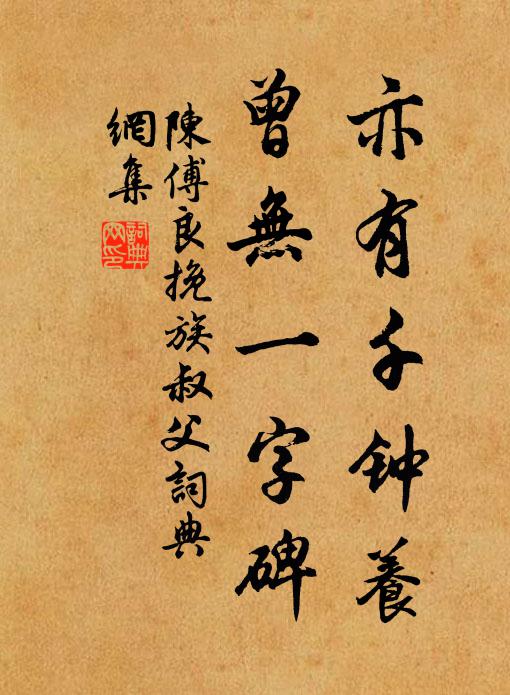 亦有千钟養
曾無一字碑
陳傅良挽族叔父詞典
網集
詞典網印